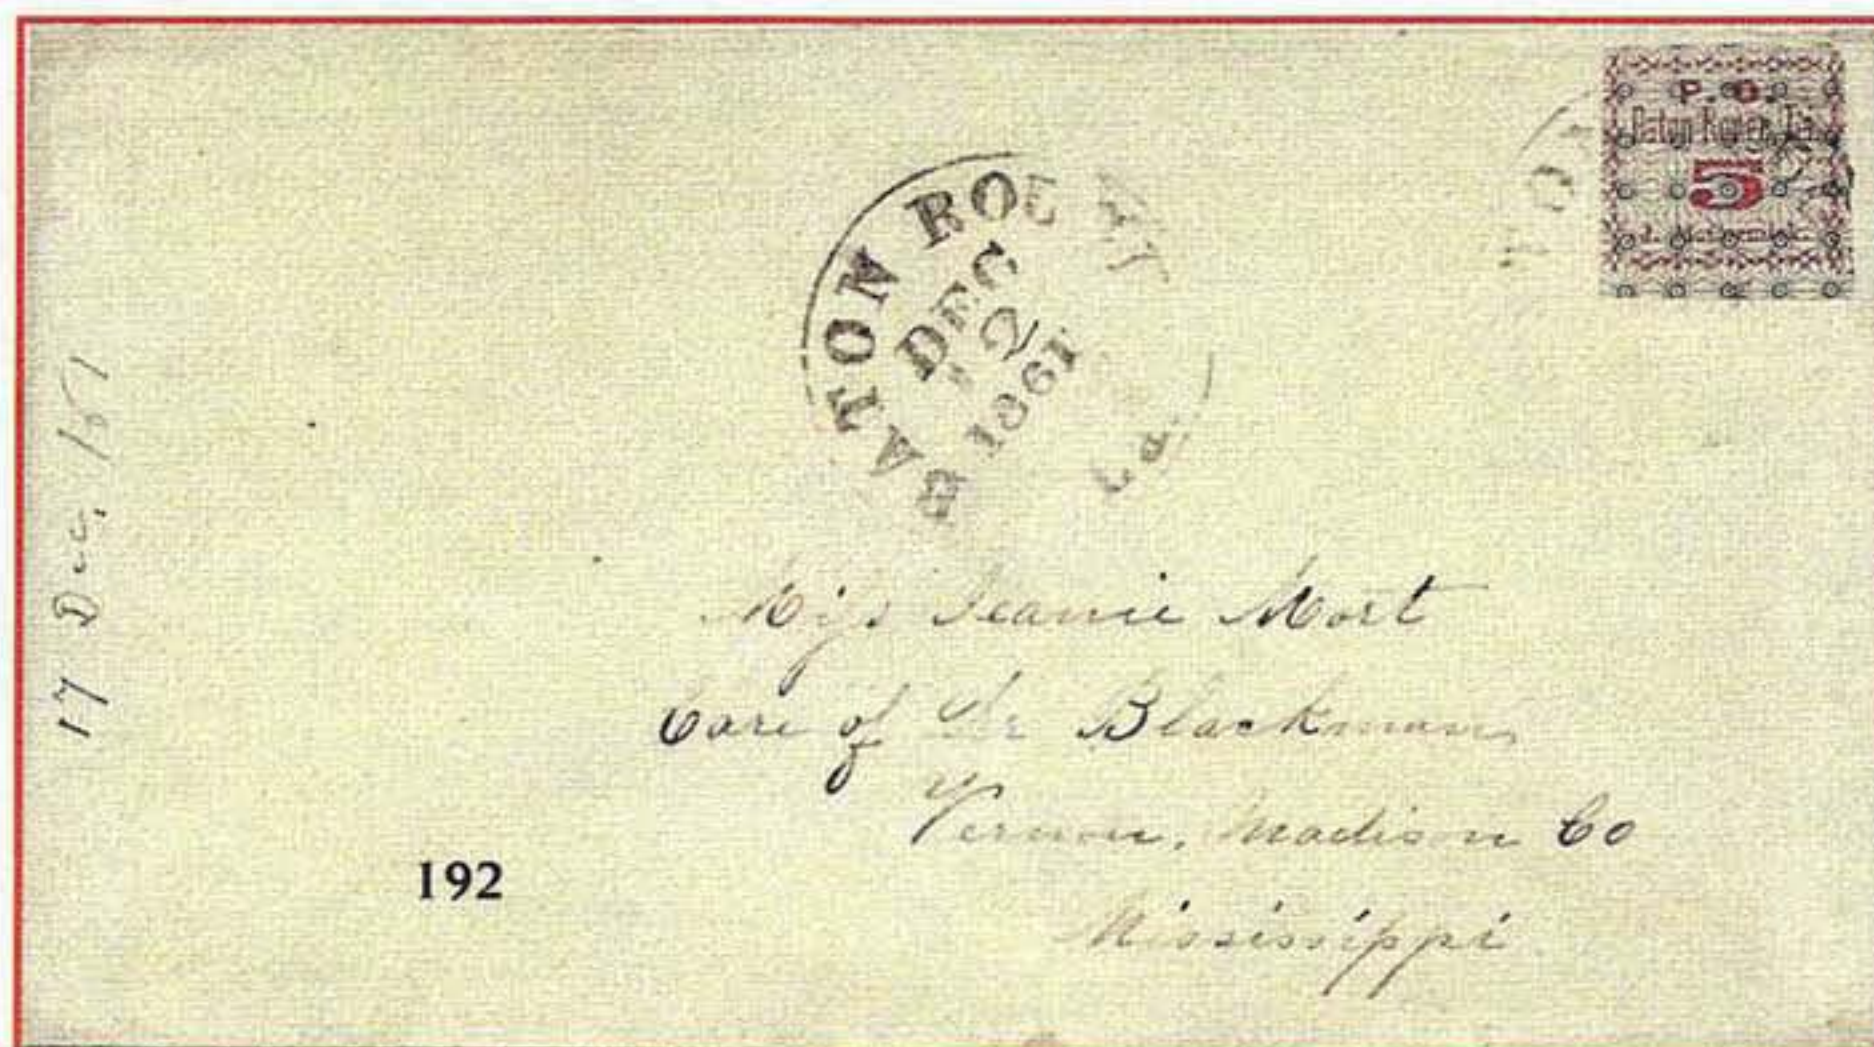 P. O.
Baton Rouge, La.
5
TON
BATON ROU
DEC
2
1861
17 Dec, 1861
Miss Jeanie Mort
Care of Dr Blackman
Vernon, Madison Co
Mississippi
192